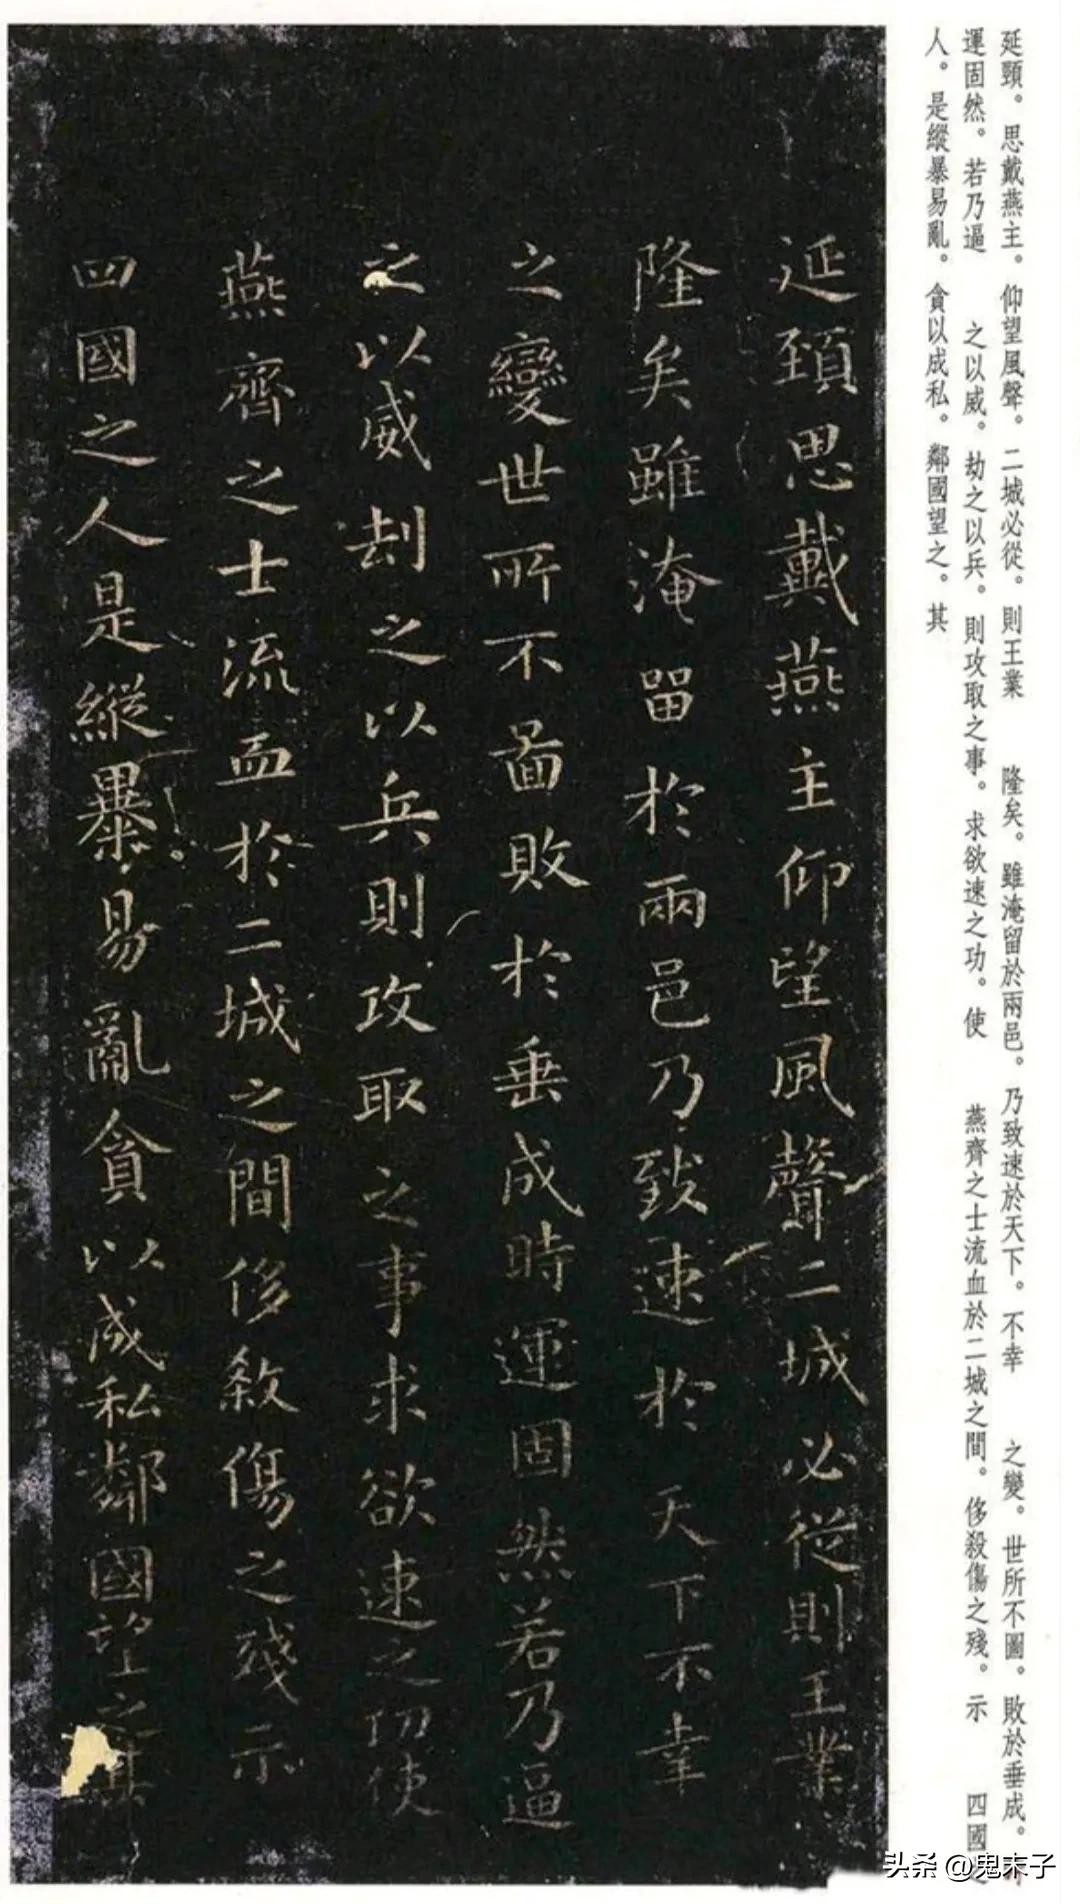 延頸。思戴燕主。仰望風聲。二城必從。則王業　隆矣。雖淹留於兩邑。乃致速於天下。不幸　之變。世所不圖。敗於垂成。
運固然。若乃逼　之以威。劫之以兵。則攻取之事。求欲速之功。使　燕齊之士流血於二城之間。侈殺傷之殘。示　四國
人。是縱暴易亂。貪以成私。鄰國望之。其
延頸思戴燕主仰望風聲二城必從則王業
隆矣雖淹留於兩邑乃致速於天下不幸
之變世所不圖敗於垂成時運固然若乃逼
之以威劫之以兵則攻取之事求欲速之功使
燕齊之士流血於二城之間侈殺傷之殘示
四國之人是縱暴易亂貪以成私鄰國望之其
头条 @鬼末子